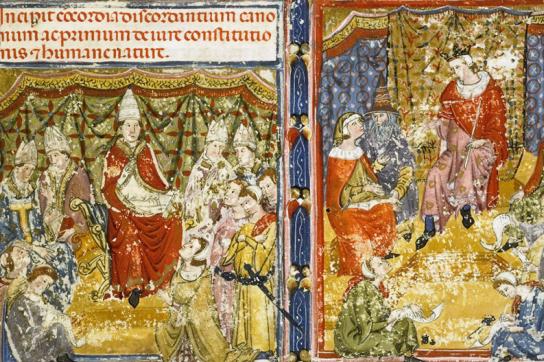 Incipit cōcordia discordantium cano
num ac primum de iure constitutio
nis ⁊ humane nature.